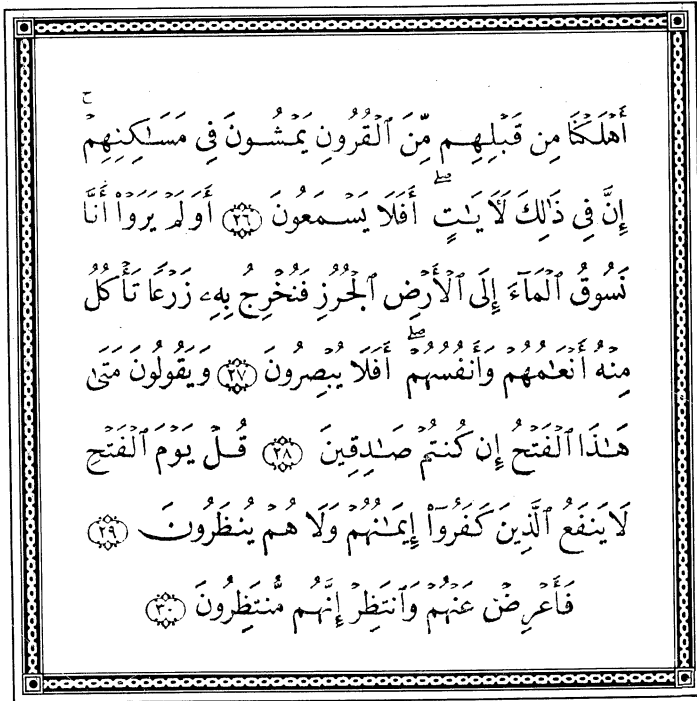 أَهْلَكْنَا مِن قَبْلِهِم مِّنَ ٱلْقُرُونِ يَمْشُونَ فِى مَسَٰكِنِهِمْ ۚ
إِنَّ فِى ذَٰلِكَ لَءَايَٰتٍ ۖ أَفَلَا يَسْمَعُونَ ٢٦ أَوَلَمْ يَرَوْا۟ أَنَّا
نَسُوقُ ٱلْمَآءَ إِلَى ٱلْأَرْضِ ٱلْجُرُزِ فَنُخْرِجُ بِهِۦ زَرْعًا تَأْكُلُ
مِنْهُ أَنْعَٰمُهُمْ وَأَنفُسُهُمْ ۖ أَفَلَا يُبْصِرُونَ ٢٧ وَيَقُولُونَ مَتَىٰ
هَٰذَا ٱلْفَتْحُ إِن كُنتُمْ صَٰدِقِينَ ٢٨ قُلْ يَوْمَ ٱلْفَتْحِ
لَا يَنفَعُ ٱلَّذِينَ كَفَرُوٓا۟ إِيمَٰنُهُمْ وَلَا هُمْ يُنظَرُونَ ٢٩
فَأَعْرِضْ عَنْهُمْ وَٱنتَظِرْ إِنَّهُم مُّنتَظِرُونَ ٣٠